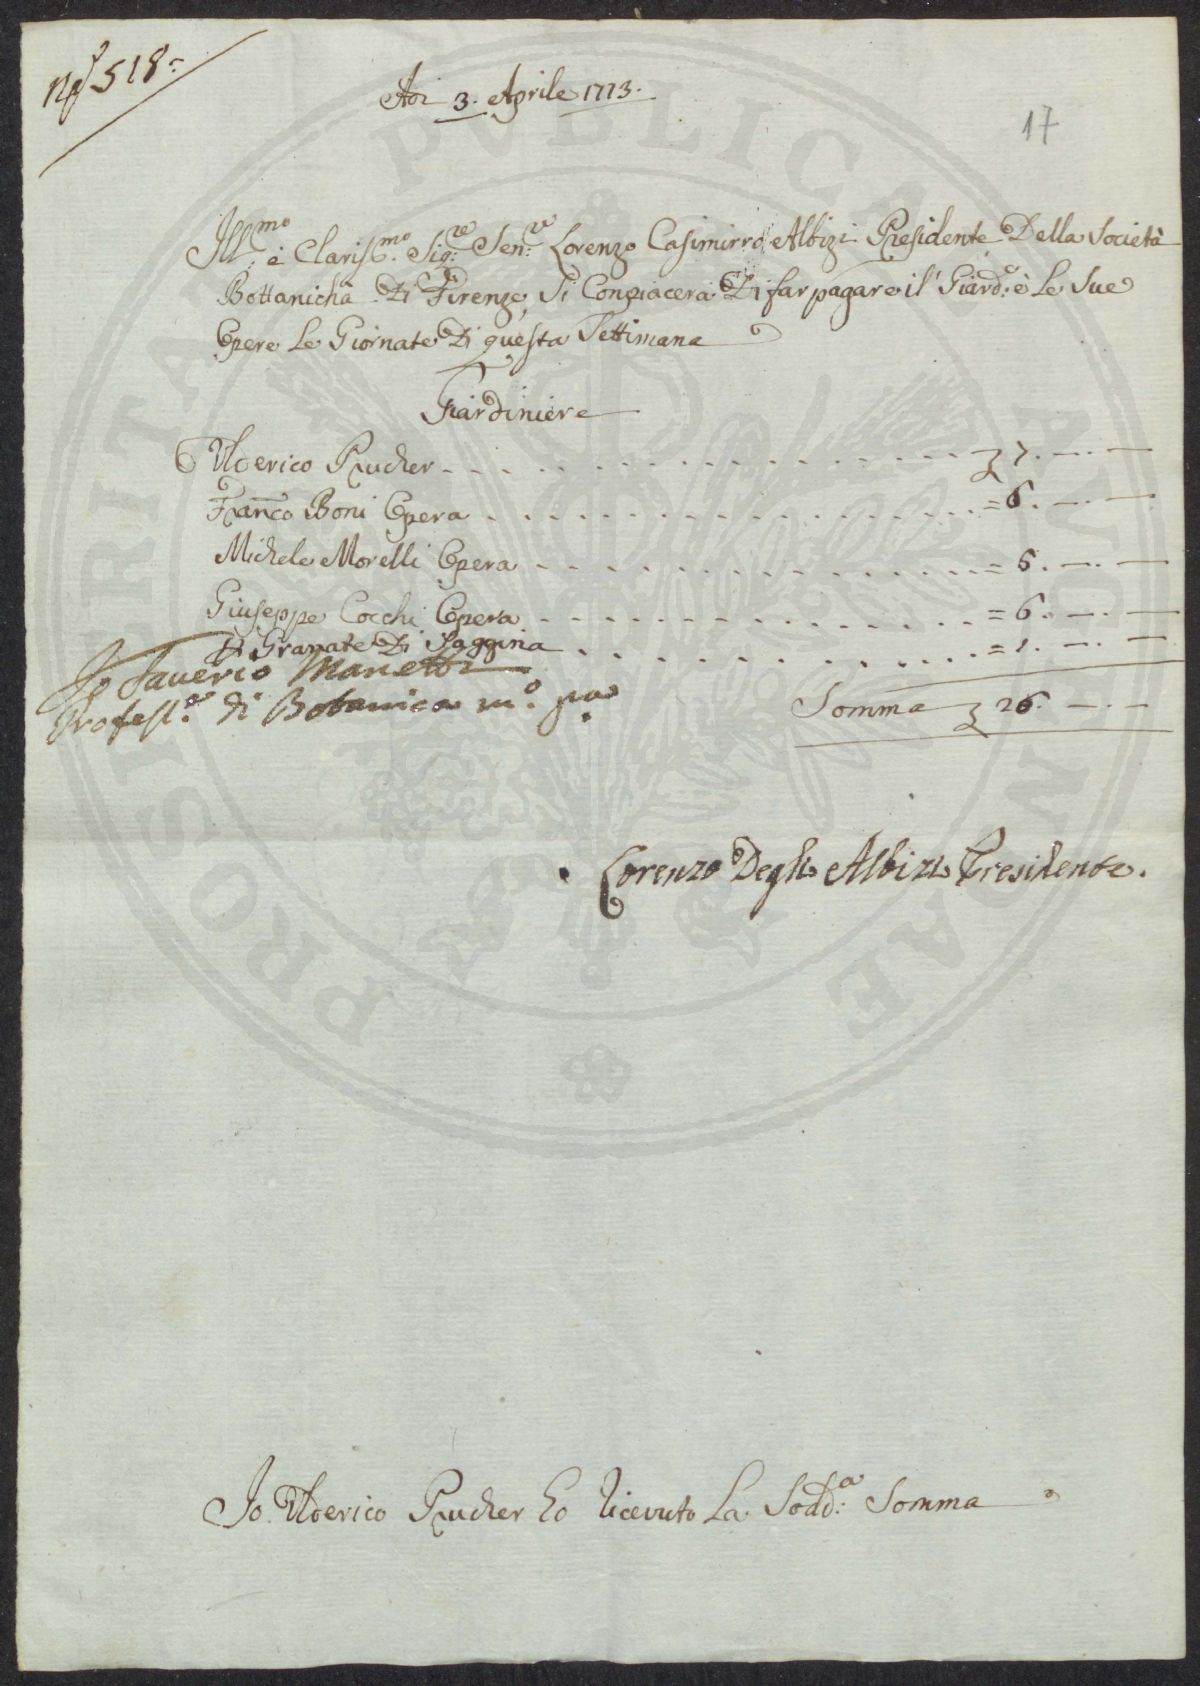 N° 518
Adi 3. Aprile 1773.
17
Ill.mo e Clariss.mo Sig.re Sen.re Lorenzo Casimirro Albizi Presidente Della Società
Bottanicha Di Firenze, Si Conpiacerà Di far pagare il Giard.e è Le Sue
Opere Le Giornate Di questa Settimana
Giardiniere
Ulderico Prucher 7. — . —
Fran.co Boni Opera = 6. — . —
Michele Morelli Opera = 6. — . —
Giuseppe Cocchi Opera = 6. — . —
Di Granate Di Saggina = 1. — . —
Io Saverio Manetti
Profess.e di Botanica m.o pa
Somma 26. — . —
Lorenzo Degli Albizi Presidente.
Io Ulderico Prucher Ho Ricevuto La Sodd.a Somma
PROSPERITATI PUBLICAE AUGENDAE